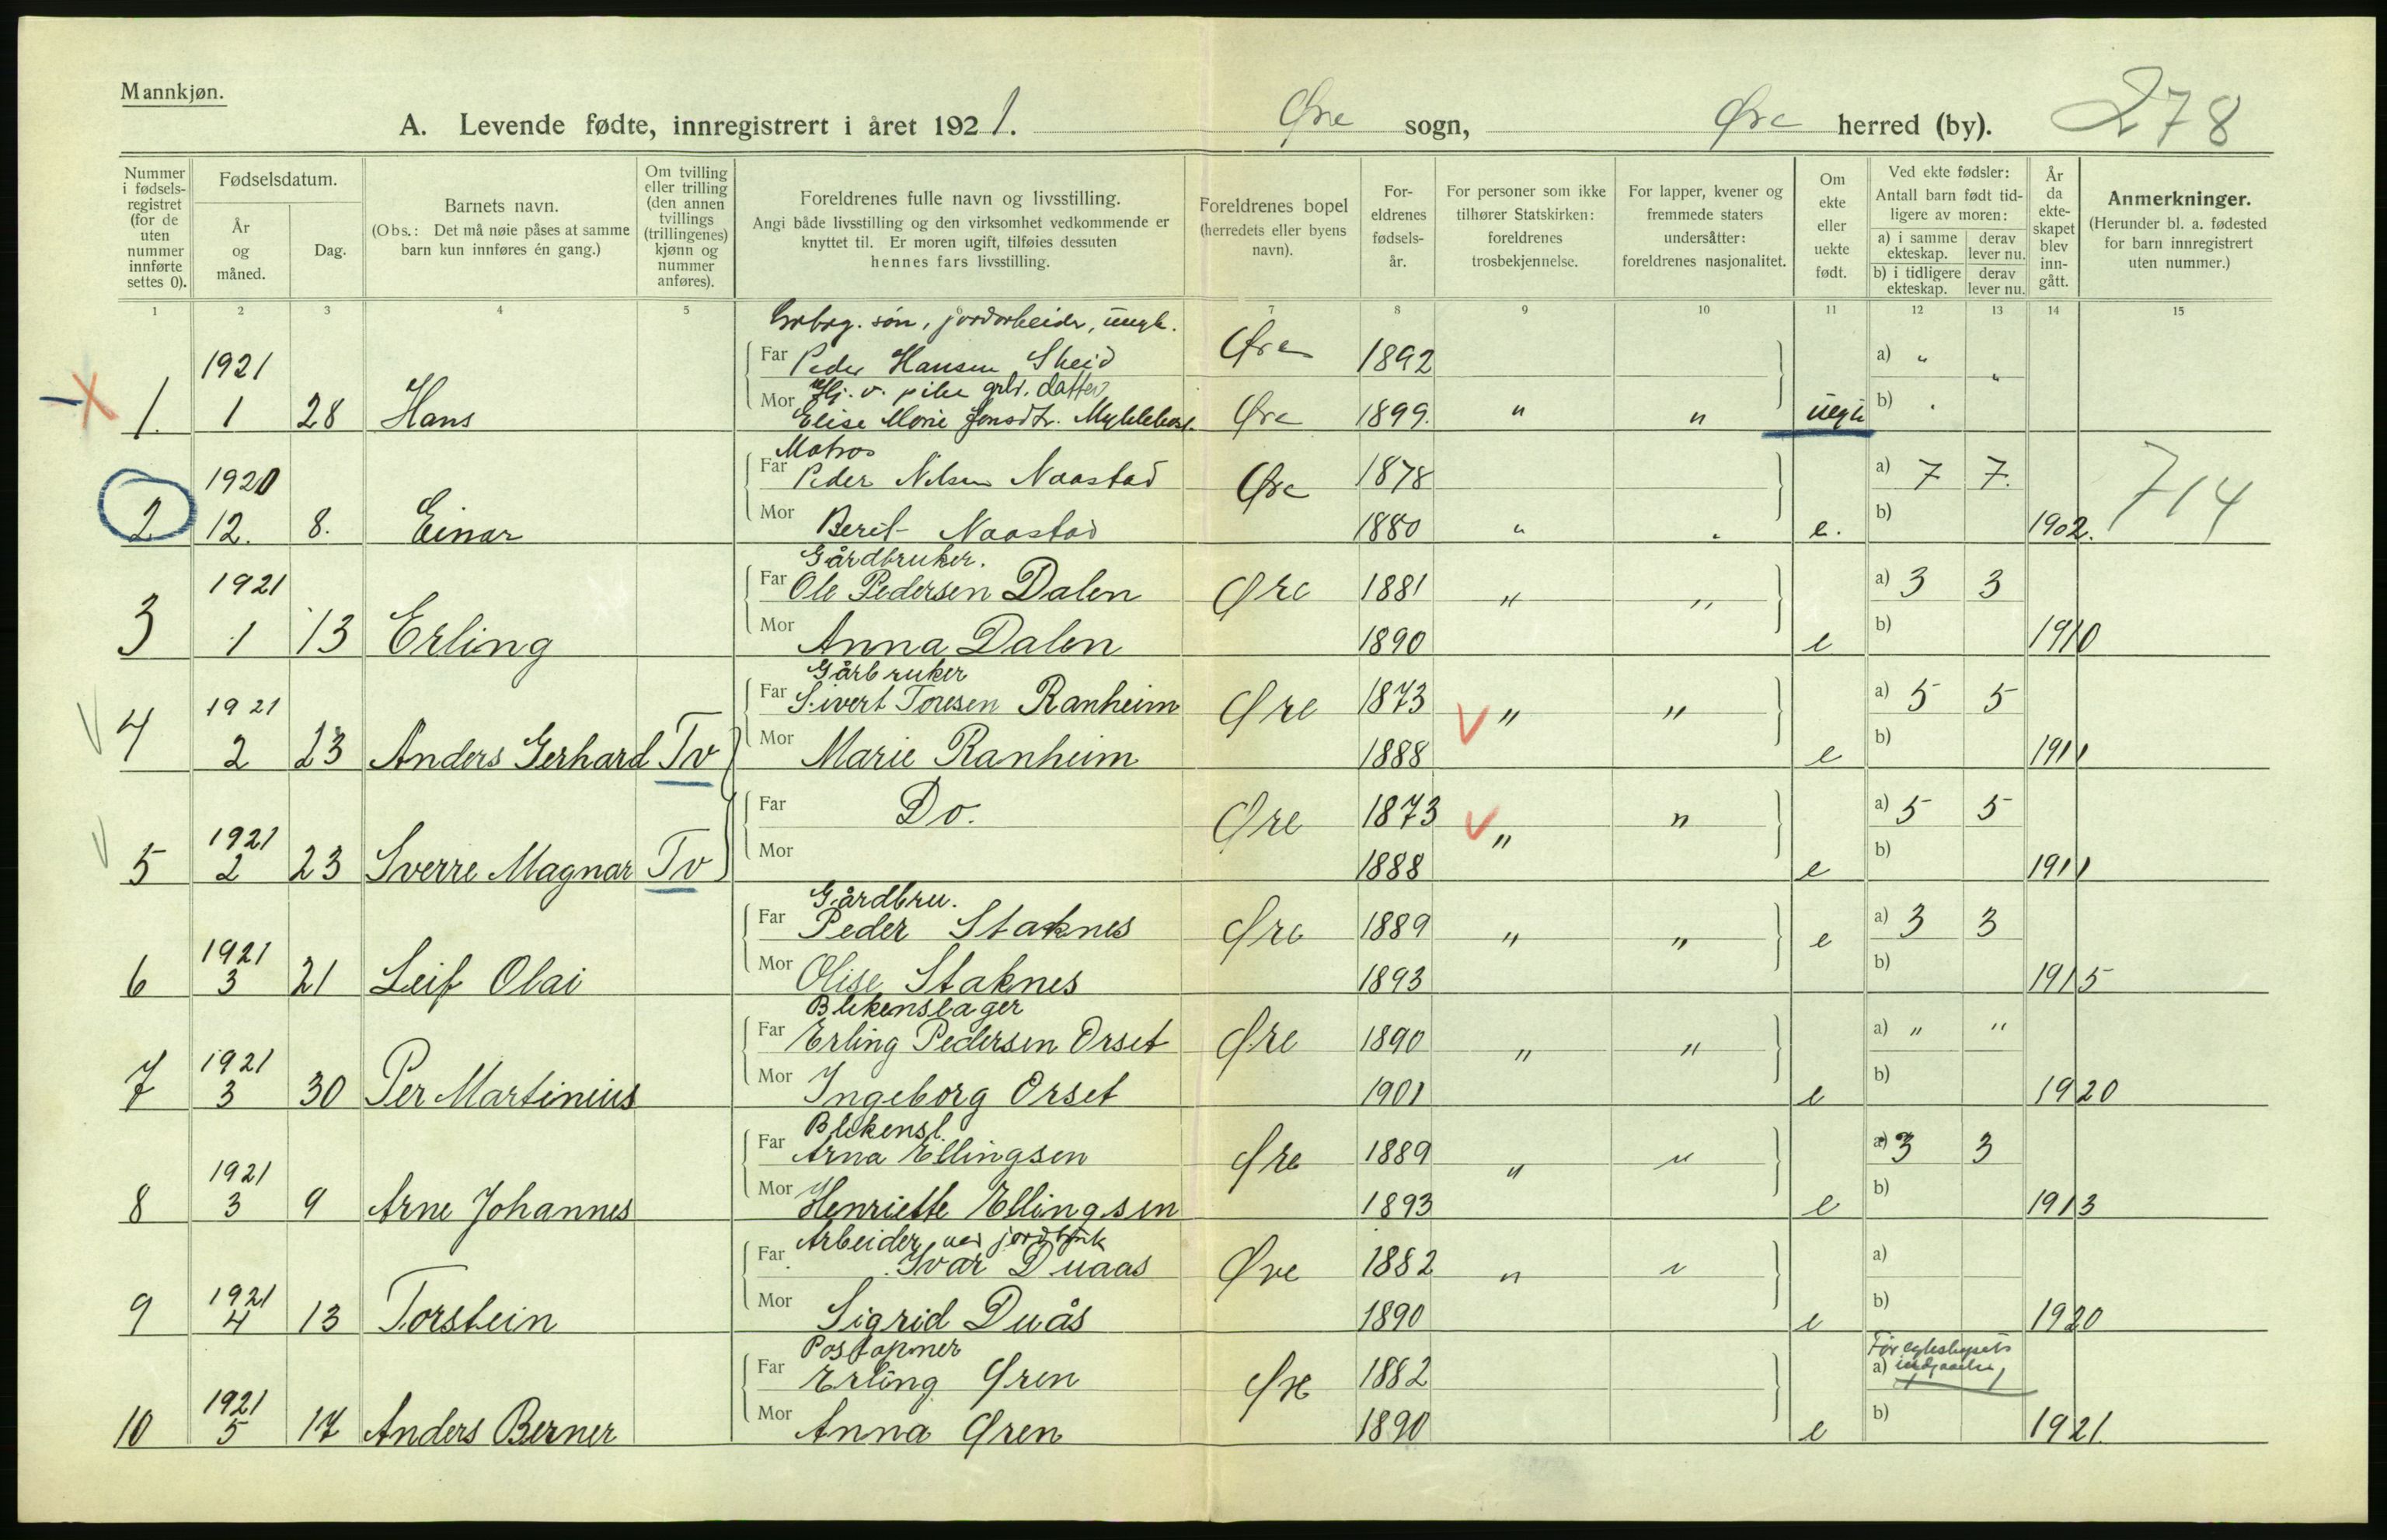 Mannkjøn.
A. Levende fødte, innregistrert i året 1921. Øre sogn, Øre herred (by). 278
Nummer i fødsels-registret (for de uten nummer innførte settes 0).
Fødselsdatum.
År og måned.
Dag.
Barnets navn.
(Obs.: Det må nøie påses at samme barn kun innføres én gang.)
Om tvilling eller trilling (den annen tvillings (trillingenes) kjønn og nummer anføres).
Foreldrenes fulle navn og livsstilling.
Angi både livsstilling og den virksomhet vedkommende er knyttet til. Er moren ugift, tilføies dessuten hennes fars livsstilling.
Foreldrenes bopel (herredets eller byens navn).
For-eldrenes fødsels-år.
For personer som ikke tilhører Statskirken: foreldrenes trosbekjennelse.
For lapper, kvener og fremmede staters undersåtter: foreldrenes nasjonalitet.
Om ekte eller uekte født.
Ved ekte fødsler: Antall barn født tid-ligere av moren:
a) i samme ekteskap. derav lever nu.
b) i tidligere ekteskap. derav lever nu.
År da ekte-skapet blev inn-gått.
Anmerkninger.
(Herunder bl. a. fødested for barn innregistrert uten nummer.)
1 2 3 4 5 6 7 8 9 10 11 12 13 14 15
søn, jordarbeider, ungk.
1921 Far Peder Hansen Skeid Øre 1892 a) "
datter
1. 1 28 Hans Mor Elise Marie Jonsdtr. Myklebost. Øre 1899. " " uegte b)
Matros
1920 Far Peder Nilsen Naastad Øre 1878 a) 7 7. 714
2 12. 8. Einar Mor Berit Naastad 1880 " " e. b) 1902.
Gårdbruker.
1921 Far Ole Pedersen Dalen Øre 1881 " " a) 3 3
3 1 13 Erling Mor Anna Dalen 1890 e b) 1910
Gårbruker
1921 Far Sivert Toresen Ranheim Øre 1873 V " " a) 5 5
V 4 2 23 Anders Gerhard Tv Mor Marie Ranheim 1888 e b) 1911
Far Do. Øre 1873 V " " a) 5 5
V 5 1921 2 23 Sverre Magnar Tv Mor 1888 e b) 1911
Gårdbru.
Far Peder Staknes Øre 1889 " " e a) 3 3
6 1921 3 21 Leif Olai Mor Olise Staknes 1893 b) 1915
Blekenslager
Far Erling Pedersen Orset Øre 1890 " " a) " "
7 1921 3 30 Per Martinius Mor Ingeborg Orset 1901 e b) 1920
Blekensl.
Far Arna Ellingsen Øre 1889 " " a) 3 3
8 1921 3 9 Arne Johannes Mor Henriette Ellingsen 1893 e b) 1913
Arbeider ved jordbruk
Far Ivar Duaas Øre 1882 " " a)
9 1921 4 13 Torstein Mor Sigrid Duås 1890 e b) 1920
Postopner Før
Far Erling Øren Øre 1882 a)
10 1921 5 17 Anders Berner Mor Anna Øren 1890 e b) 1921.